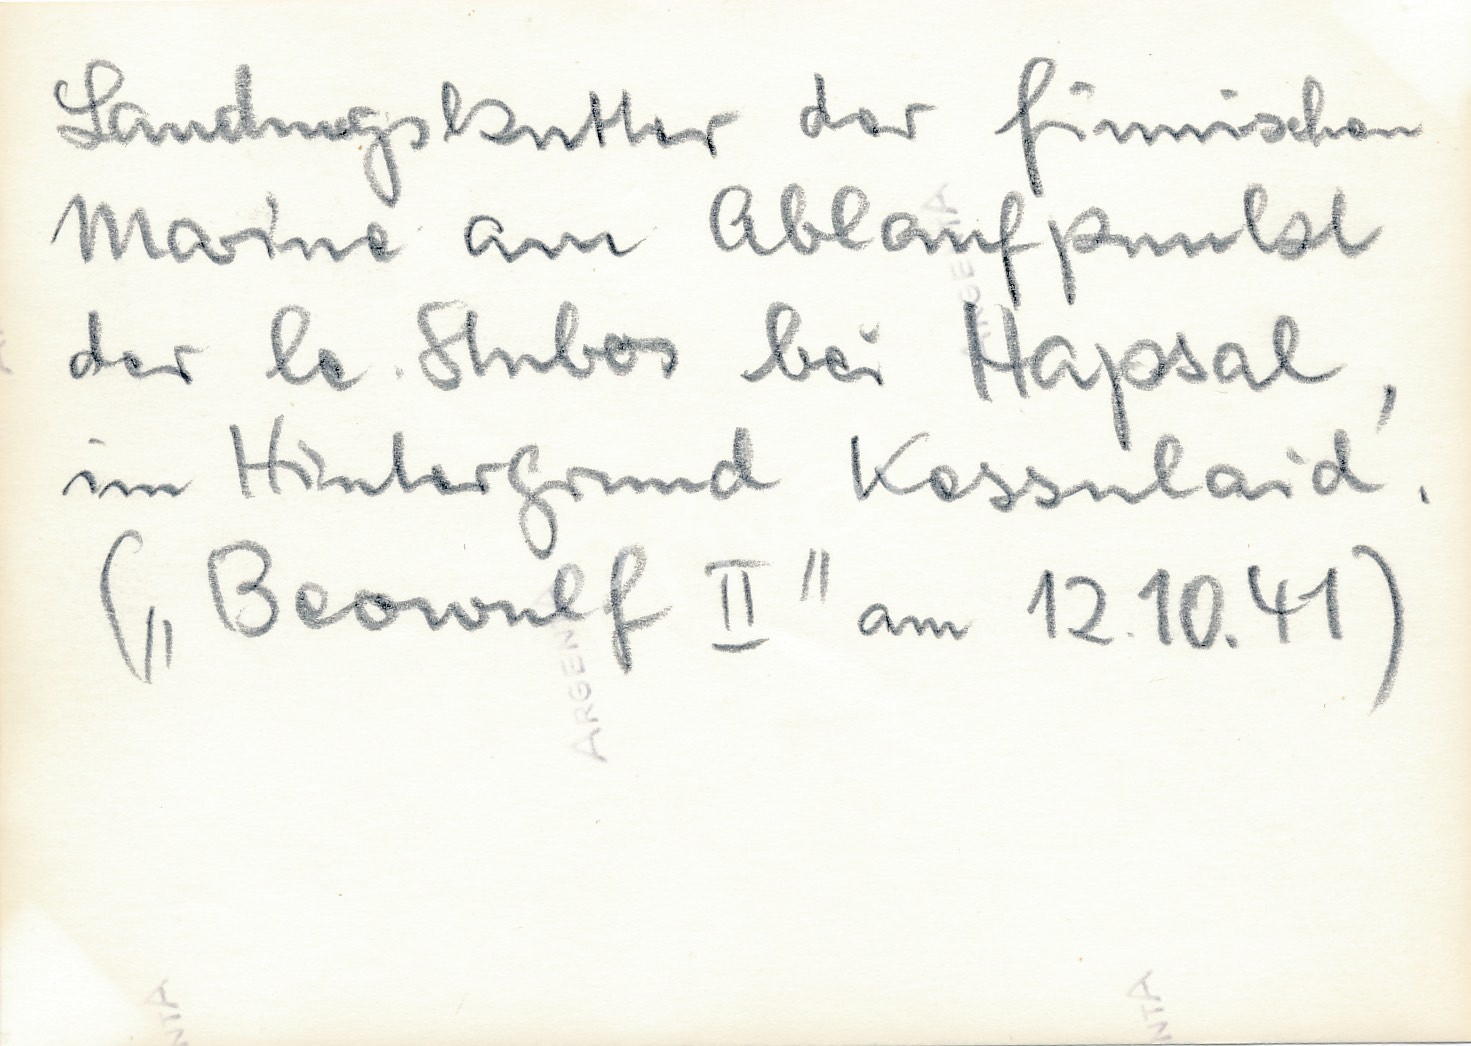 Landungskutter der finnischen
Marine am Ablaufpunkt
der le. Stubos bei Hapsal,
im Hintergrund Kessulaid.
("Beowulf II" am 12.10.41)
ARGENTA